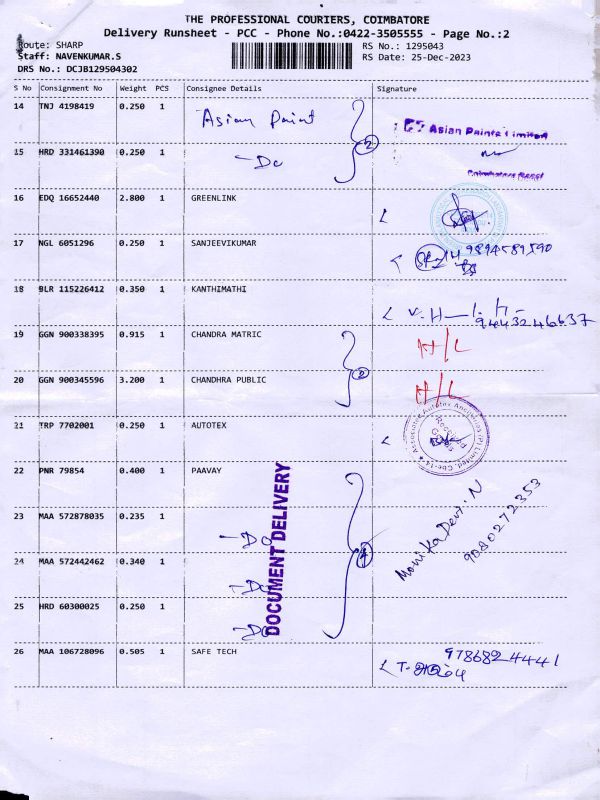 THE PROFESSIONAL COURIERS, COIMBATORE
Delivery Runsheet - PCC - Phone No.:0422-3505555 - Page No.:2
Route: SHARP
RS No.: 1295043
Staff: NAVENKUMAR.S
RS Date: 25-Dec-2023
DRS No.: DCJB129504302
S No Consignment No Weight PCS Consignee Details Signature
14 TNJ 4198419 0.250 1 Asian Paint
2
Asian Paints Limited
15 HRD 331461390 0.250 1 -Do
16 EDQ 16652440 2.800 1 GREENLINK
17 NGL 6051296 0.250 1 SANJEEVIKUMAR
9894589590
18 BLR 115226412 0.350 1 KANTHIMATHI
9443246637
19 GGN 900338395 0.915 1 CHANDRA MATRIC H/L
2
20 GGN 900345596 3.200 1 CHANDHRA PUBLIC H/L
21 TRP 7702001 0.250 1 AUTOTEX
Associated Autotex Ancillaries (P) Limited, Cbe-14
Received
22 PNR 79854 0.400 1 PAAVAY
DOCUMENT DELIVERY
23 MAA 572878035 0.235 1 -Do
4
Monika Devi.N
9080272353
24 MAA 572442462 0.340 1 -Do
25 HRD 60300025 0.250 1 -Do
26 MAA 106728096 0.505 1 SAFE TECH
9786824441